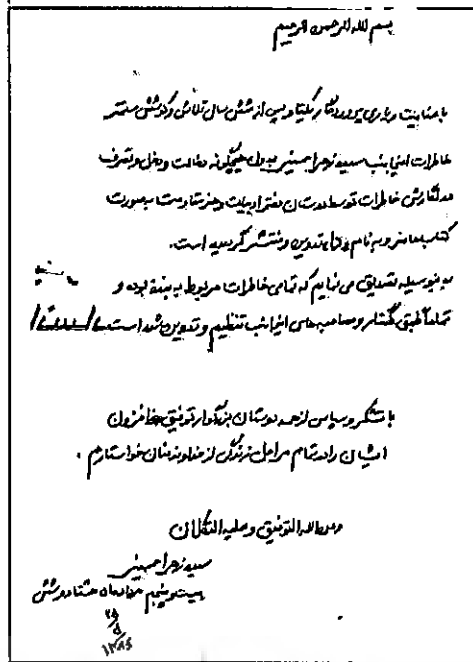 بسم الله الرحمن الرحیم
با عنایت و یاری پروردگار یکتا و پس از شش سال تلاش و کوشش مستمر
خاطرات اینجانب سیده زهرا حسینی بدون هیچگونه دخالت و دخل و تصرف
در نگارش خاطرات توسط دوستان دفتر ادبیات و هنر مقاومت به صورت
کتاب حاضر و به نام «دا» تدوین و منتشر گردیده است.
بدینوسیله تصدیق می نمایم که تمامی خاطرات مربوط به بنده بوده و
تماماً طبق گفتار و مصاحبه های اینجانب تنظیم و تدوین شده است.
با تشکر و سپاس از همه دوستان بزرگوار توفیق افزون
ایشان را در تمام مراحل زندگی از خداوند منان خواستارم.
و من الله التوفیق و علیه التکلان
سیده زهرا حسینی
بیست و پنجم مرداد ماه هشتاد و شش
۲۵
۵
۱۳۸۶